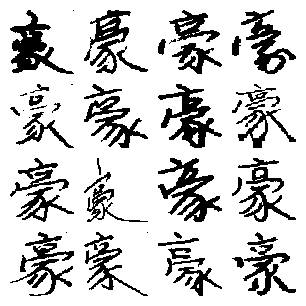 豪豪豪豪
豪豪豪豪
豪豪豪豪
豪豪豪豪